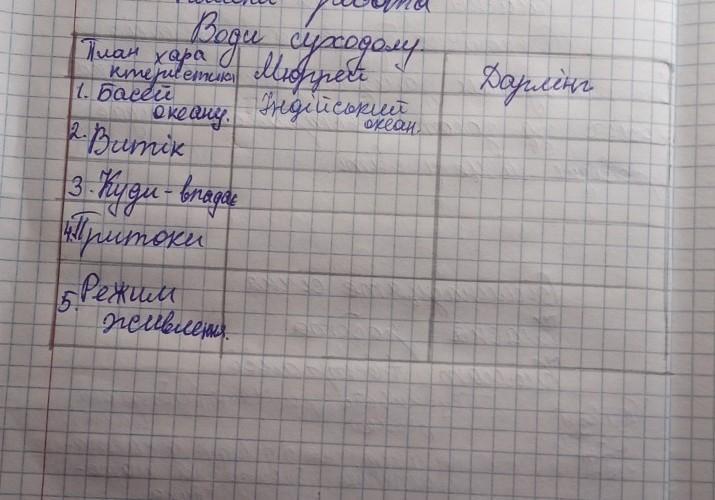 работа
Води суходолу.
План хара
ктеристики
Мюррей
Дарлінг
1. Басей
океану.
Індійський
океан.
2. Витік
3. Куди - впадає
4. Притоки
5. Режим
живлення.